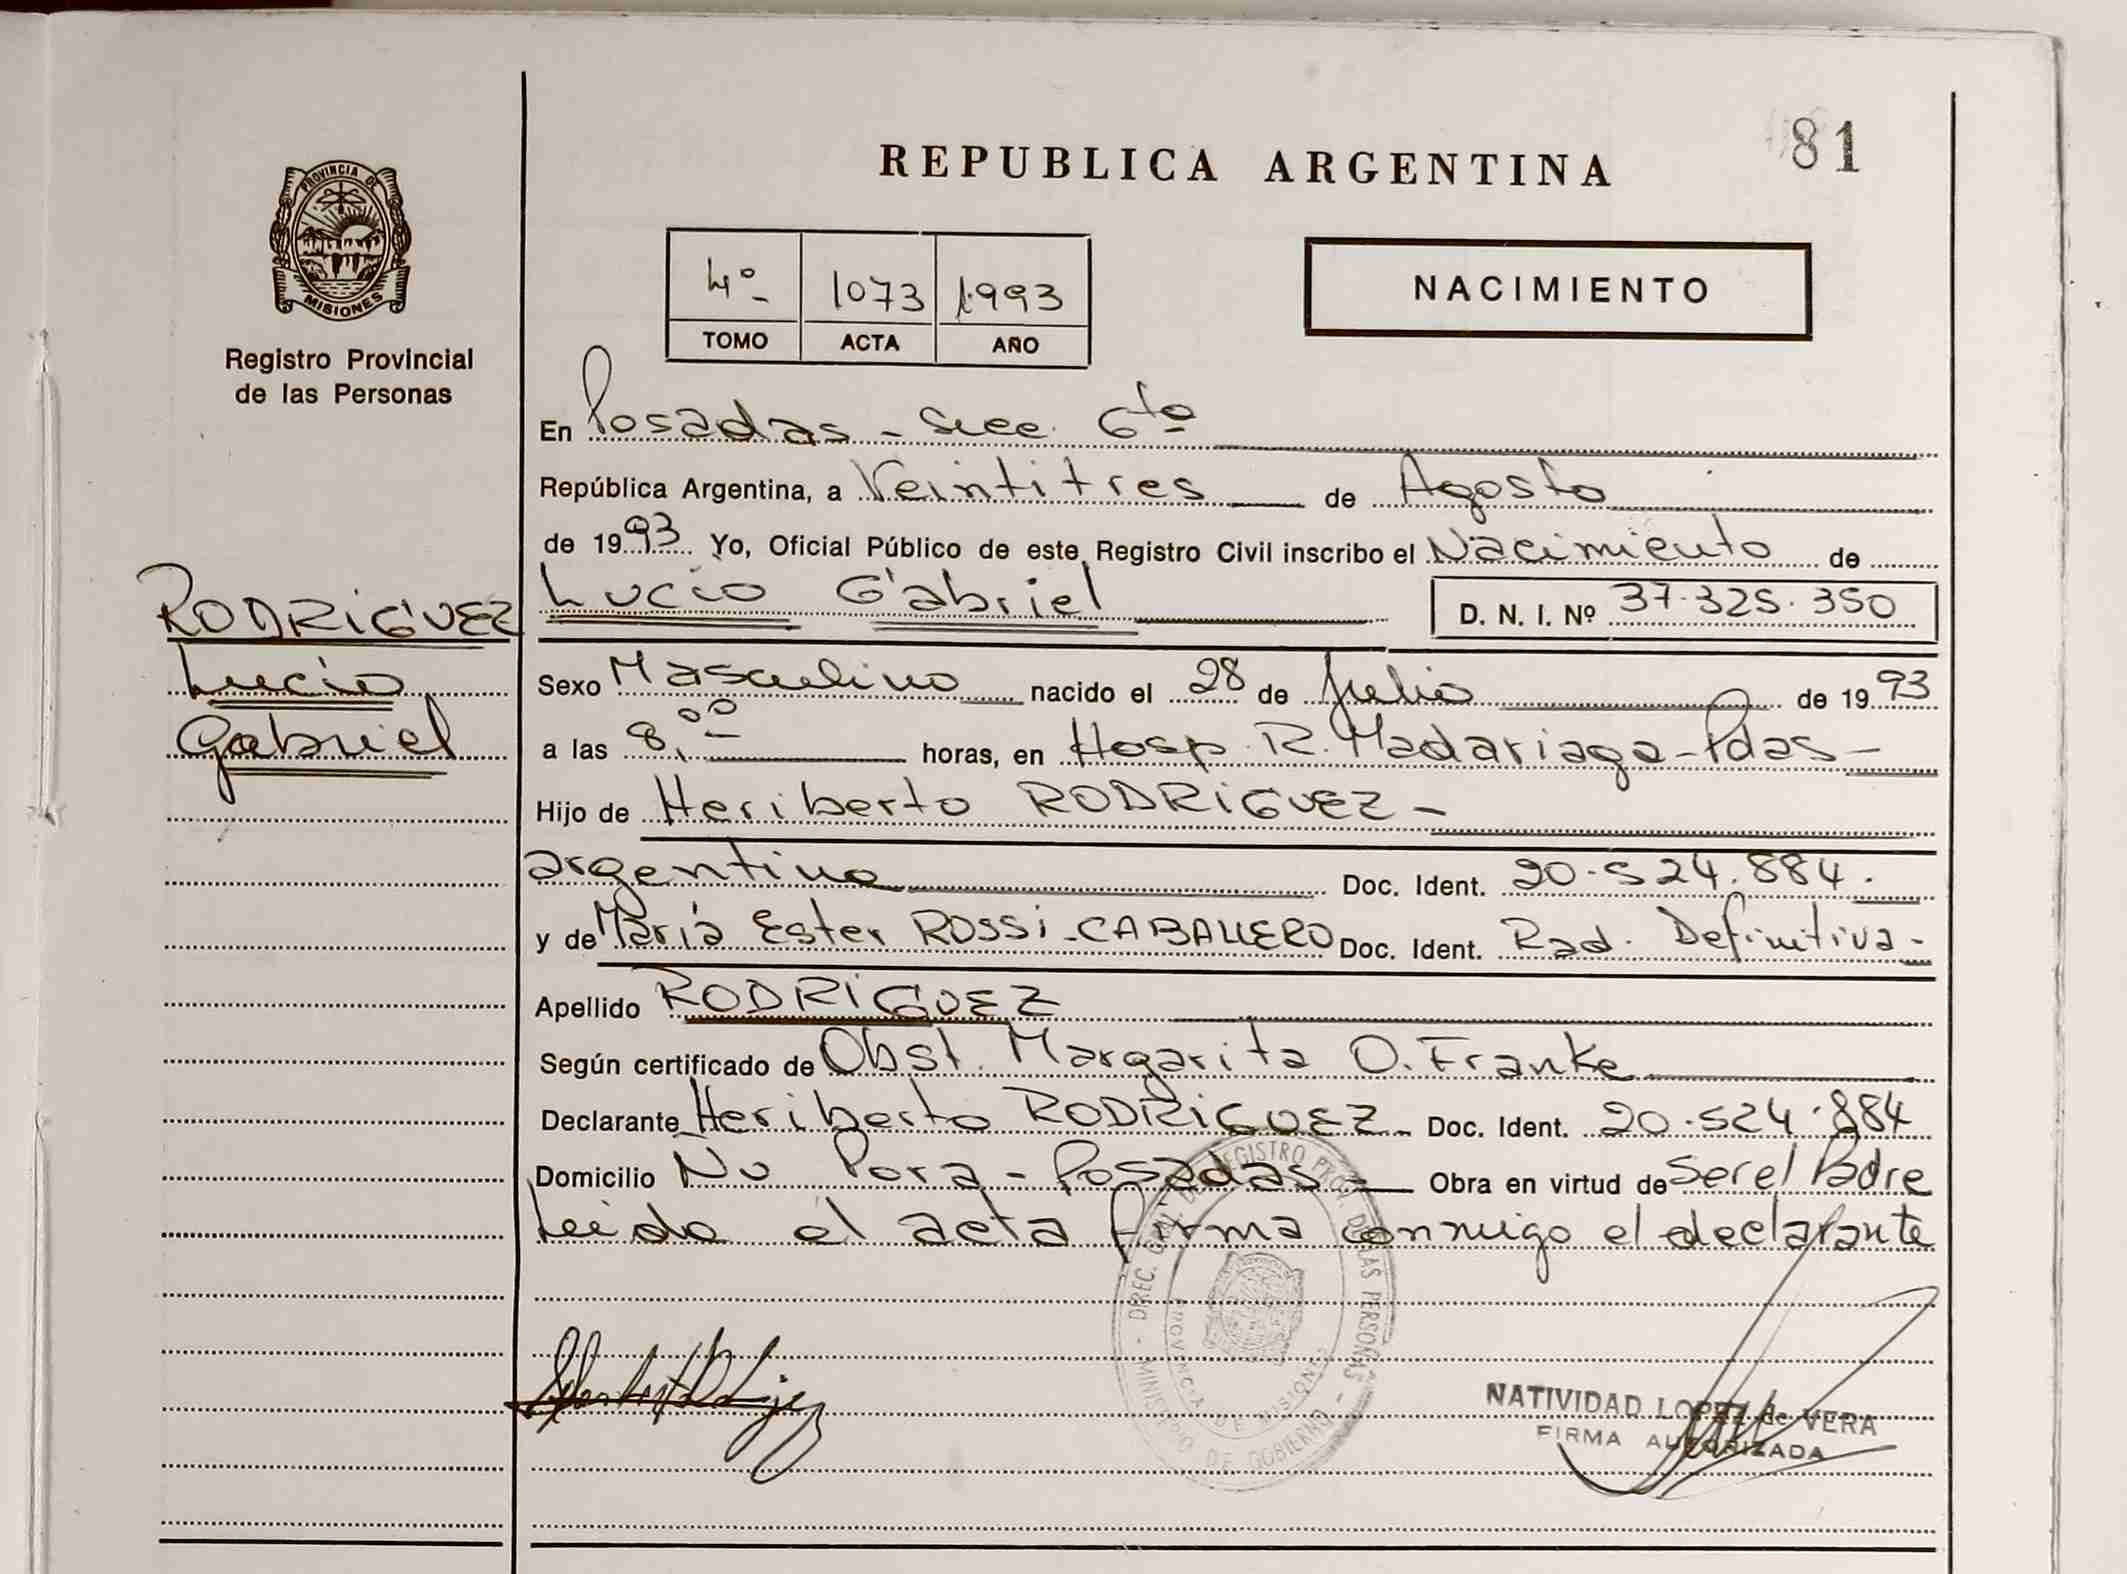 REPUBLICA ARGENTINA
81
PROVINCIA DE
MISIONES
Registro Provincial
de las Personas
4º- 1073 1993
TOMO ACTA AÑO
NACIMIENTO
En Posadas - Secc. 6ta
República Argentina, a Veintitres de Agosto
de 1993 Yo, Oficial Público de este Registro Civil inscribo el Nacimiento de
RODRIGUEZ
Lucio
Gabriel
Lucio Gabriel D. N. I. Nº 37.325.350
Sexo Masculino nacido el 28 de Julio de 1993
a las 8,00 horas, en Hosp. R. Madariaga - Pdas -
Hijo de Heriberto RODRIGUEZ -
argentino Doc. Ident. 20.524.884.
y de María Ester ROSSI - CABALLERO Doc. Ident. Rad. Definitiva -
Apellido RODRIGUEZ
Según certificado de Obst. Margarita O. Franke
Declarante Heriberto RODRIGUEZ - Doc. Ident. 20.524.884
Domicilio Ñu Pora - Posadas - Obra en virtud de Ser el Padre
Leido el acta firma conmigo el declarante
DIREC. GRAL. DEL REGISTRO PROV. DE LAS PERSONAS - MINISTERIO DE GOBIERNO -
PROVINCIA DE MISIONES
NATIVIDAD LOPEZ de VERA
FIRMA AUTORIZADA